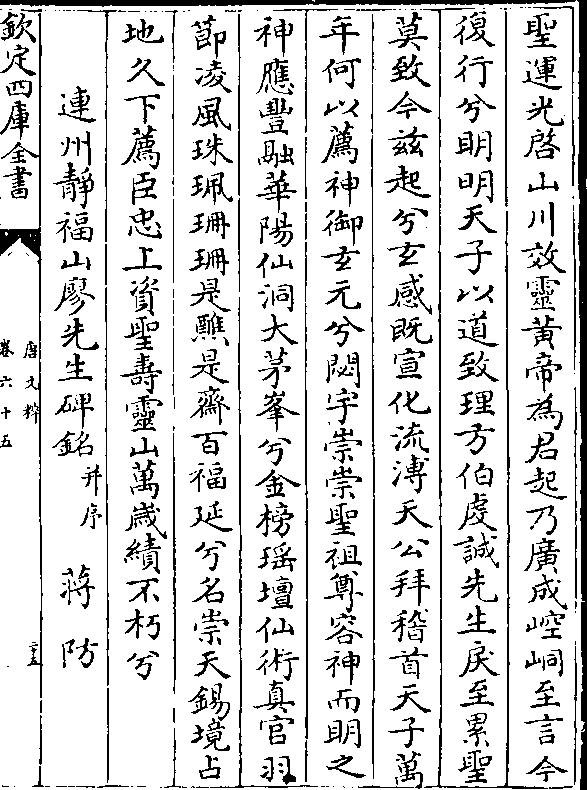 聖運光啓山川效靈黄帝為君起乃廣成崆峒至言今
復行兮明明天子以道致理方伯虔誠先生戾至累聖
莫致今兹起兮玄感既宣化流溥天公拜稽首天子萬
年何以薦神御玄元兮閟宇崇崇聖祖尊容神而明之
神應豐融華陽仙洞大茅峯兮金榜瑶壇仙術真官羽
節凌風珠珮珊珊是醮是齋百福延兮名崇天錫境占
地久下薦臣忠上資聖壽靈山萬歲績不朽兮
連州靜福山廖先生碑銘并序 蔣防
欽定四庫全書
唐文粹
卷六十五
二五